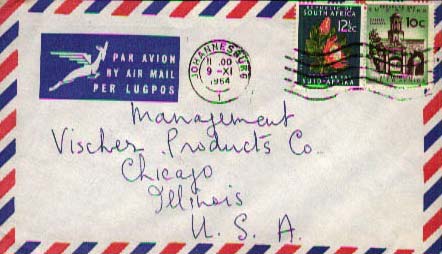 PAR AVION
BY AIR MAIL
PER LUGPOS
JOHANNESBURG
11.00
9-XI
1964
1
REPUBLIC OF
SOUTH AFRICA
12½c
SUID-AFRIKA
10c
Management
Vischer Products Co.
Chicago
Illinois
U. S. A.